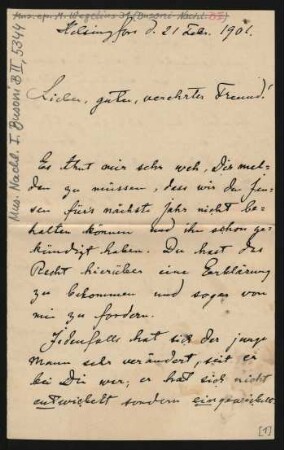 Mus. ep. M. Wegelius 31 (Busoni-Nachl. B II)
Mus. Nachl. F. Busoni B II, 5344
Helsingfors d. 21 Febr. 1901.
Lieber, guter, verehrter Freund!
Es thut mir sehr weh, Dir mel-
den zu müssen, dass wir da Jen-
sen fürs nächste Jahr nicht be-
halten können und ihn schon ge-
kündigt haben. Du hast das
Recht hierüber eine Erklärung
zu bekommen und sogar von
mir zu fordern.
Jedenfalls hat sich der junge
Mann sehr verändert, seit er
bei Dir war; er hat sich nicht
entwickelt sondern eingewickelt
[1]